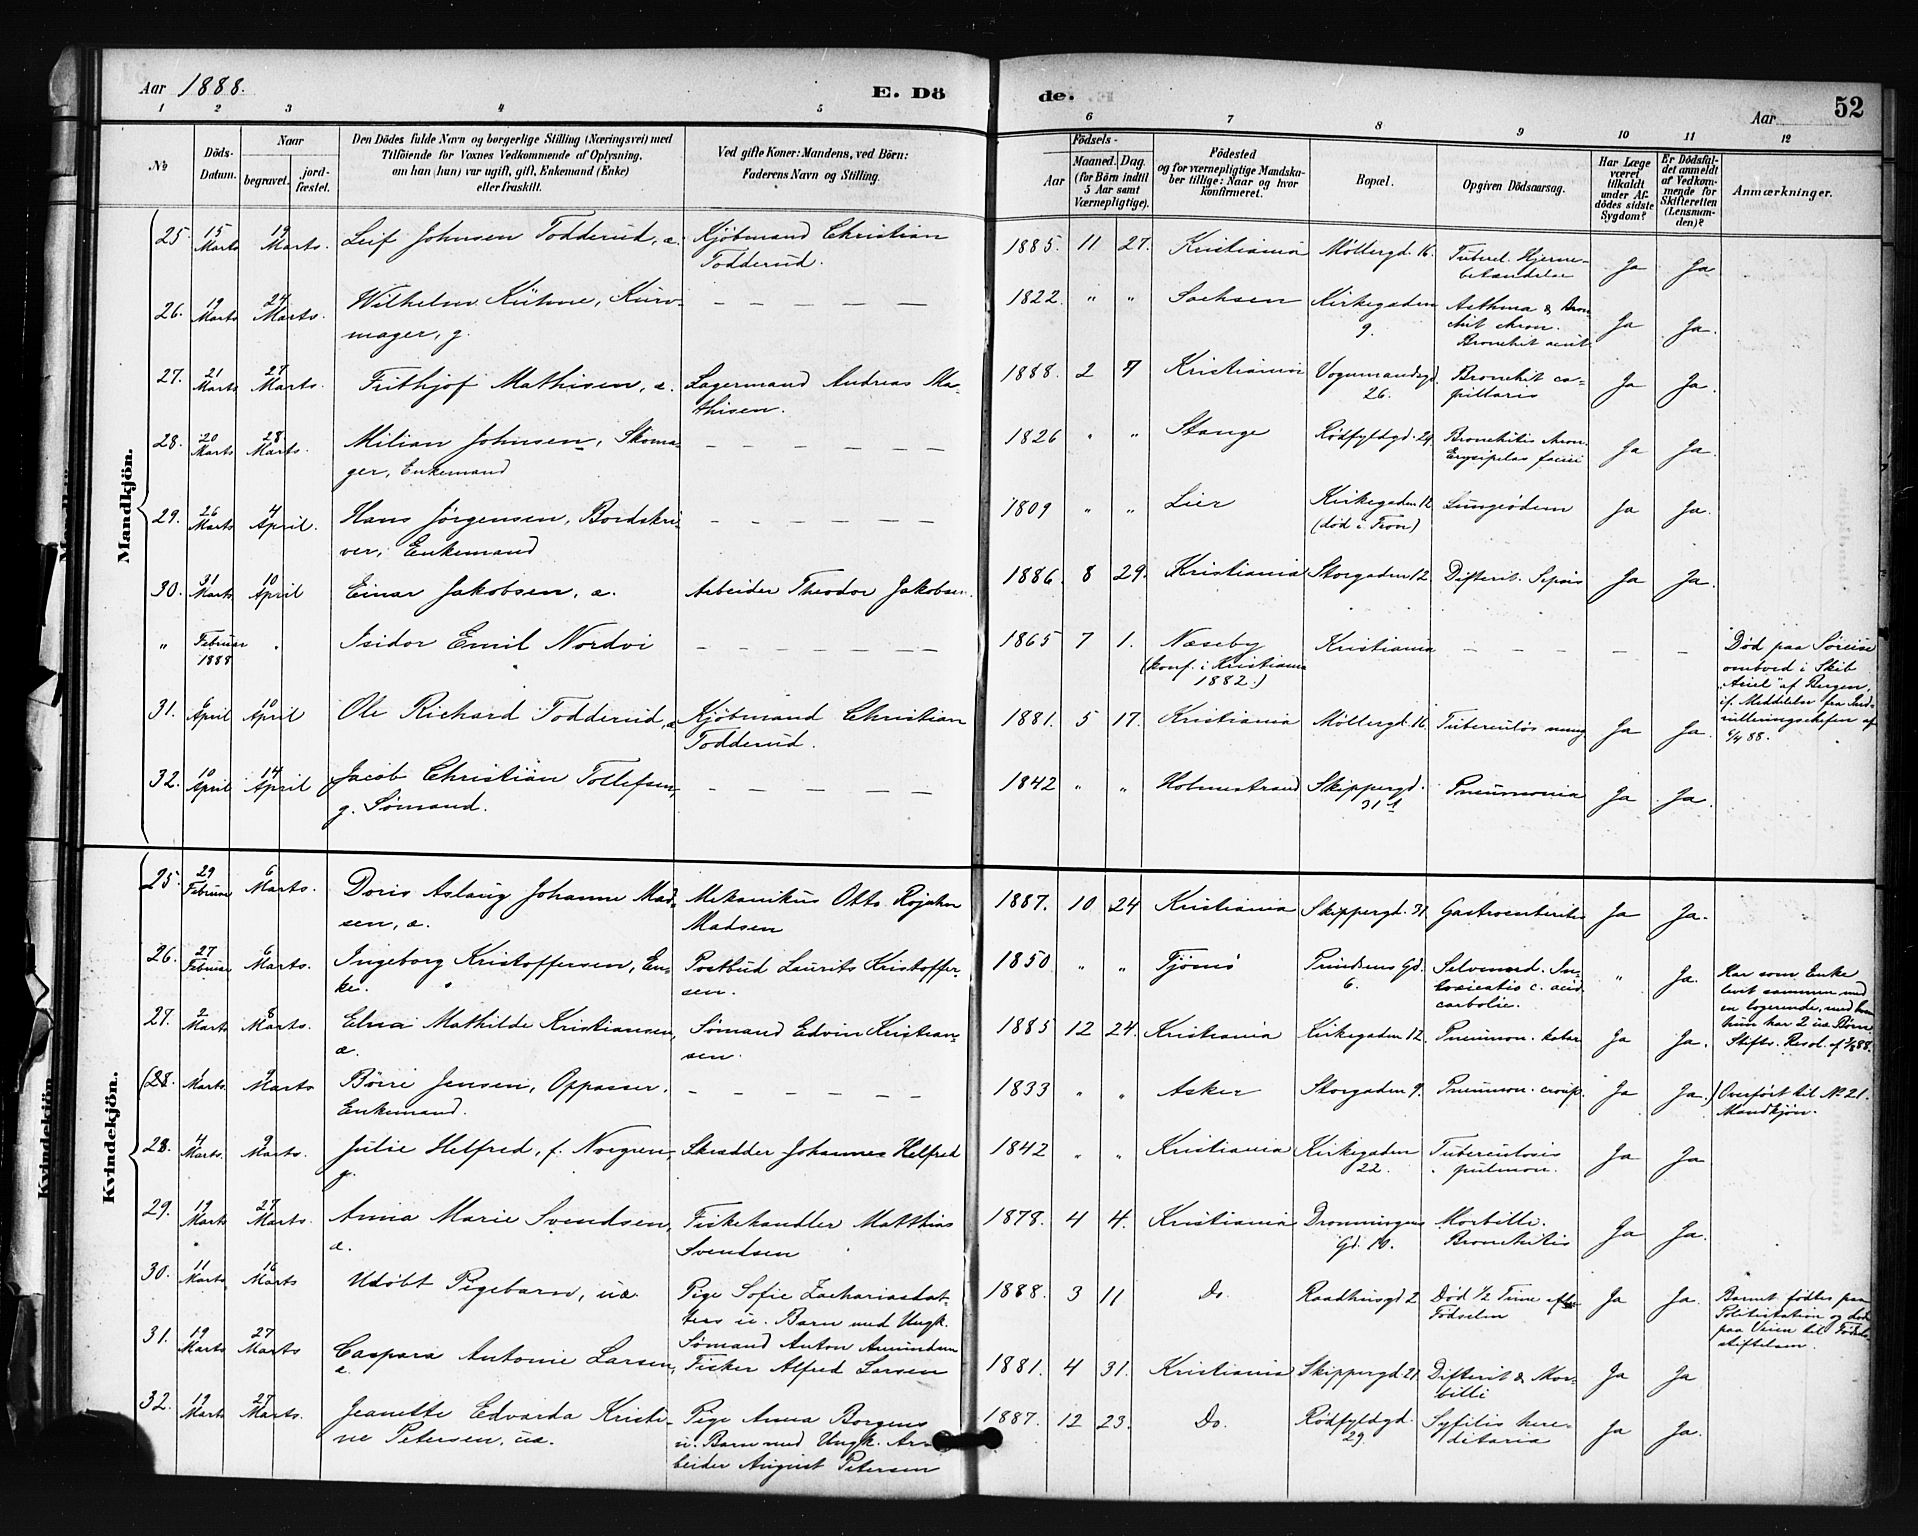 Aar 1888. E. Dö de. Aar 52
1 2 3 4 5 6 7 8 9 10 11 12
No
Döds-
Datum.
Naar
begravet.
jord-
fæstet.
Den Dödes fulde Navn og borgerlige Stilling (Næringsvei) med
Tilföiende for Voxnes Vedkommende af Oplysning,
om han (hun) var ugift, gift, Enkemand (Enke)
eller fraskilt.
Ved gifte Koner: Mandens, ved Börn:
Faderens Navn og Stilling.
Födsels-
Aar
Maaned. Dag.
(for Börn indtil
5 Aar samt
Værnepligtige).
Födested
og for værnepligtige Mandska-
ber tillige: Naar og hvor
konfirmeret.
Bopæl.
Opgiven Dödsaarsag.
Har Læge
været
tilkaldt
under Af-
dödes sidste
Sygdom?
Er Dödsfal-
det anmeldt
af Vedkom-
mende for
Skifteretten
(Lensman-
den)?
Anmærkninger.
Mandkjön.
25 15 Marts 19 Marts. Leif Johnsen Todderud, æ. Kjöbmand Christian
Todderud. 1885. 11 27. Kristiania Møllergd. 16. Tuberel. Hjerne-
betændelse Ja Ja
26. 19 Marts 24 Marts. Wilhelm Kühne, Kurv-
mager, g. – – – – – 1822. " " Sachsen Kirkegaden
9. Asthma & Bron
chit chron.
Bronchit acut. Ja Ja.
27. 21 Marts 27 Marts. Frithjof Mathisen, æ. Lagermand Andreas Ma-
thisen. 1888. 2 7 Kristiania Vognmandsgd.
26. Bronchit ca-
pillaris Ja Ja.
28. 20 Marts 28. Marts. Milian Johnsen, Skoma-
ger, Enkemand – – – – – – 1826 " " Stange Rødfyldgd. 24. Bronchitis chron.
Erysipelas faciei Ja Ja.
29. 26 Marts 4 April. Hans Jørgensen, Bordskri-
ver, Enkemand – – – – – – 1809 " " Lier Kirkegaden 12
(død i Tron) Lungeödem Ja Ja.
30. 31 Marts 10 April Einar Jakobsen, æ. Arbeider Theodor Jakobsen. 1886. 8 29. Kristiania Storgaden 12. Difterit. Sepsis Ja Ja.
" Februar
1888 " Isidor Emil Nordvi – – – – – – 1865 7 1. Næseby
(konf. i Kristiania
1882.) Kristiania – – – – – Død paa Søreise
ombord i Skib
"Ariel" af Bergen,
if. Meddelelse fra Ind-
rulleringschefen af
6/4 88.
31. 6 April 10 April Ole Richard Todderud, æ Kjöbmand Christian
Todderud. 1881. 5 17. Kristiania Møllergd. 16. Tuberculös mening Ja Ja.
32. 10 April 14 April Jacob Christian Tollefsen,
g. Sømand. – – – – – 1842 " " Holmestrand Skippergd.
31 Pneumonia Ja Ja.
Kvindekjön.
25. 29 Februar 6 Marts. Doris Aslaug Johanne Mad-
sen, æ. Mekanikus Otto Rojahn
Madsen 1887. 10 24 Kristiania Skippergd. 31. Gastroenterit Ja Ja.
26. 27 Februar 6 Marts. Ingeborg Kristoffersen, En-
ke. Postbud Laurits Kristoffer-
sen. 1850 " " Tjømø Prindsens Gd.
6. Selvmord. In-
toxicatis c. acid.
carbolic. " Ja. Har som Enke
levet sammen med
en logerende, med hvem
hun har 2 uæ. Børn
Stifts. Resol. af 88.
27. 2 Marts 8 Marts. Elna Mathilde Kristiansen,
æ. Sømand Edvin Kristian-
sen. 1885 12 24. Kristiania Kirkegaden 12. Pneumon. katar Ja Ja.
(28. 1 Marts. 9 Marts Børre Jensen, Oppasser,
Enkemand. – – – – – – 1833 " " Asker Storgaden 9. Pneumon. croup. Ja Ja.) Overført til No 21.
Mandkjøn.
28. 4 Marts. 9 Marts. Julie Helfred, f. Norgren,
g. Skrædder Johannes Helfred 1842 " " Kristiania Kirkegaden
22. Tuberculosis
pulmon. Ja Ja
29. 19 Marts 27 Marts. Anna Marie Svendsen,
æ. Fiskehandler Matthias
Svendsen 1878. 4 4. Kristiania Dronningens
Gd. 10. Morbilli.
Bronchitis Ja Ja.
30. 11 Marts 16 Marts Udøbt Pigebarn, uæ. Pige Sofie Zachariasdat-
ters u. Barn med Ungk.
Sømand Anton Amundsen 1888. 3 11 Do. Raadhusgd 2 Død 1/2 Time efter
Fødselen Ja Ja. Barnet fødtes paa
Politistation og døde
paa Veien til Fødsels-
stiftelsen.
31. 19 Marts 27 Marts Caspara Antonie Larsen,
æ. Fisker Alfred Larsen 1881. 4 31. Kristiania Skippergd. 21. Difterit & Mor-
billi Ja Ja
32. 19 Marts 27 Marts. Jeanette Edvarda Kristi-
ne Petersen, uæ. Pige Anna Borgens
u. Barn med Ungk. Ar-
beider August Petersen 1887. 12 23. Do. Rødfyldgd.
29. Syfilis here-
ditaria Ja Ja.